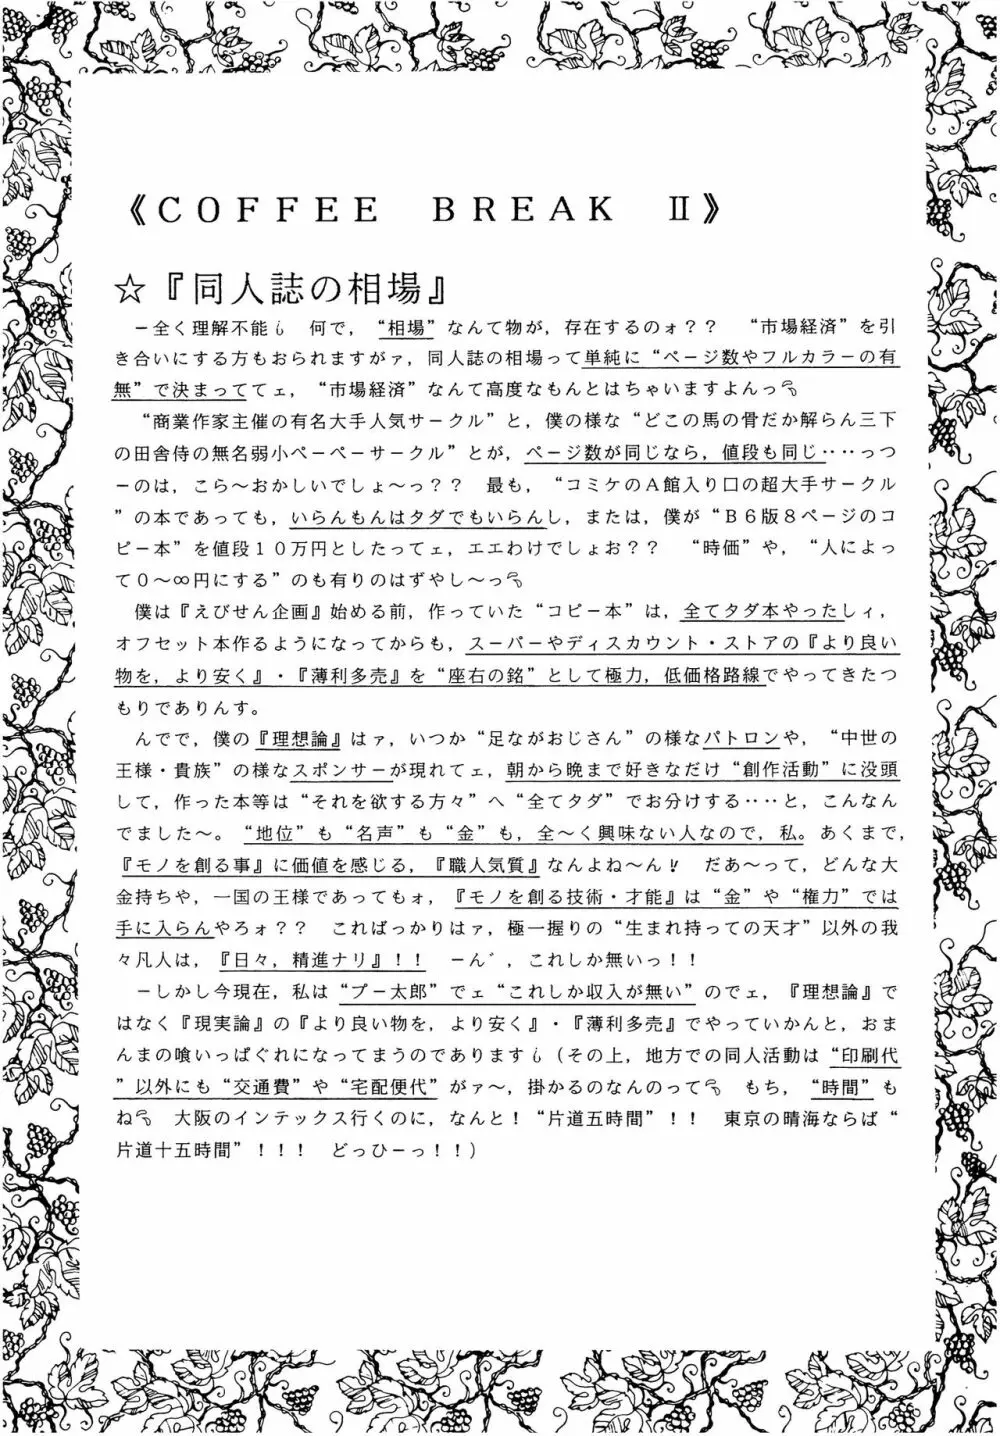 《ＣＯＦＦＥＥ　ＢＲＥＡＫ　Ⅱ》
☆『同人誌の相場』
　－全く理解不能！　何で，“相場”なんて物が，存在するのォ？？　“市場経済”を引
き合いにする方もおられますがァ，同人誌の相場って単純に“ページ数やフルカラーの有
無”で決まっててェ，“市場経済”なんて高度なもんとはちゃいますよんっ。
　“商業作家主催の有名大手人気サークル”と，僕の様な“どこの馬の骨だか解らん三下
の田舎侍の無名弱小ペーペーサークル”とが，ページ数が同じなら，値段も同じ‥‥っつ
ーのは，こら～おかしいでしょ～っ？？　最も，“コミケのＡ館入り口の超大手サークル
”の本であっても，いらんもんはタダでもいらんし，または，僕が“Ｂ６版８ページのコ
ピー本”を値段１０万円としたってェ，エエわけでしょお？？　“時価”や，“人によっ
て０～∞円にする”のも有りのはずやし～っ。
　僕は『えびせん企画』始める前，作っていた“コピー本”は，全てタダ本やったしィ，
オフセット本作るようになってからも，スーパーやディスカウント・ストアの『より良い
物を，より安く』・『薄利多売』を“座右の銘”として極力，低価格路線でやってきたつ
もりでありんす。
　んでで，僕の『理想論』はァ，いつか“足ながおじさん”の様なパトロンや，“中世の
王様・貴族”の様なスポンサーが現れてェ，朝から晩まで好きなだけ“創作活動”に没頭
して，作った本等は“それを欲する方々”へ“全てタダ”でお分けする‥‥と，こんなん
でました～。“地位”も“名声”も“金”も，全～く興味ない人なので，私。あくまで，
『モノを創る事』に価値を感じる，『職人気質』なんよね～ん！　だあ～って，どんな大
金持ちや，一国の王様であってもォ，『モノを創る技術・才能』は“金”や“権力”では
手に入らんやろォ？？　こればっかりはァ，極一握りの“生まれ持っての天才”以外の我
々凡人は，『日々，精進ナリ』！！　－ん゛，これしか無いっ！！
　－しかし今現在，私は“プー太郎”でェ“これしか収入が無い”のでェ，『理想論』で
はなく『現実論』の『より良い物を，より安く』・『薄利多売』でやっていかんと，おま
んまの喰いっぱぐれになってまうのであります！（その上，地方での同人活動は“印刷代
”以外にも“交通費”や“宅配便代”がァ～，掛かるのなんのって。　もち，“時間”も
ね。　大阪のインテックス行くのに，なんと！“片道五時間”！！　東京の晴海ならば“
片道十五時間”！！！　どっひーっ！！）